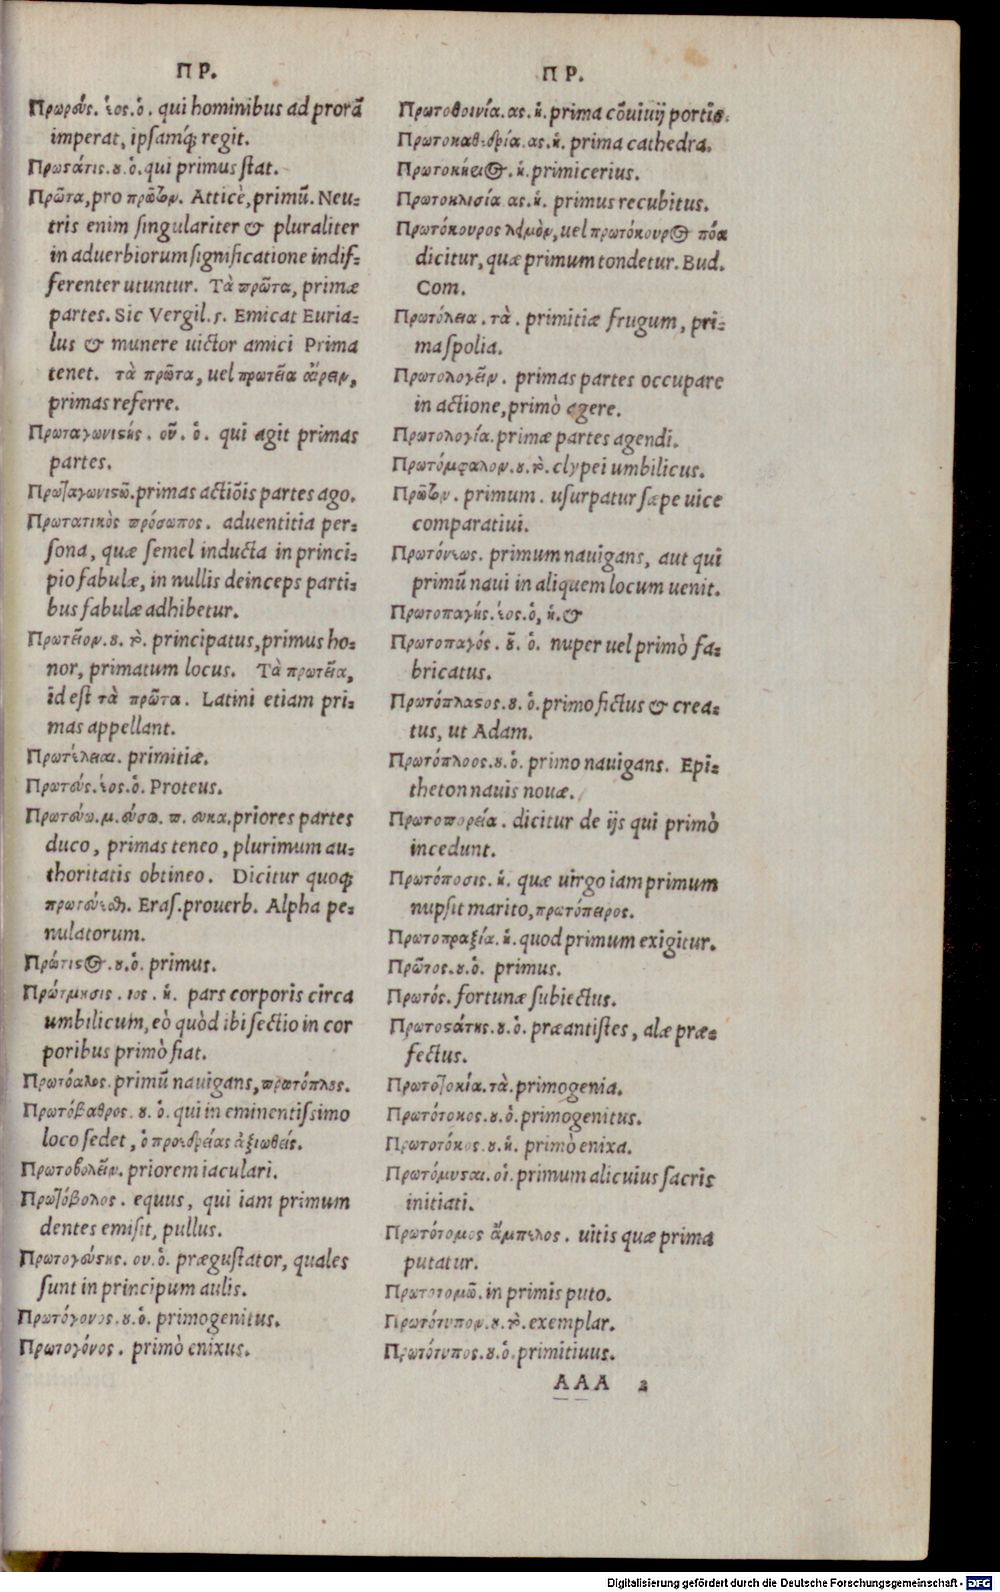 ΠΡ.
Πρωρεύς. έος. ὁ. qui hominibus ad prorã
imperat, ipsamq́; regit.
Πρωςάτις. ȣ. ὁ. qui primus stat.
Πρῶτα, pro πρῶτον. Atticè, primũ. Neu=
tris enim singulariter & pluraliter
in aduerbiorum significatione indif=
ferenter utuntur. Τὰ πρῶτα, primæ
partes. Sic Vergil. 5. Emicat Euria=
lus & munere uictor amici Prima
tenet. τὰ πρῶτα, uel πρωτεῖα αἴρειν,
primas referre.
Πρωταγωνιςής. οῦ. ὁ. qui agit primas
partes.
Πρωταγωνιςῶ. primas actiõis partes ago.
Πρωτατικὸς πρόσωπος. aduentitia per=
sona, quæ semel inducta in princi=
pio fabulæ, in nullis deinceps parti=
bus fabulæ adhibetur.
Πρωτεῖον. ȣ. τὸ. principatus, primus ho=
nor, primatum locus. Τὰ πρωτεῖα,
id est τὰ πρῶτα. Latini etiam pri=
mas appellant.
Πρωτέλειαι. primitiæ.
Πρωτεύς. έος. ὁ. Proteus.
Πρωτεύω. μ. εύσω. π. ευκα. priores partes
duco, primas teneo, plurimum au=
thoritatis obtineo. Dicitur quoq;
πρωτεύεσθαι. Eras. prouerb. Alpha pe=
nulatorum.
Πρώτιςος. ȣ. ὁ. primus.
Πρώτμησις. ιος. ἡ. pars corporis circa
umbilicum, eò quòd ibi sectio in cor
poribus primò fiat.
Πρωτόαλος. primũ nauigans, πρωτόπλȣς.
Πρωτόβαθρος. ȣ. ὁ. qui in eminentissimo
loco sedet, ὁ προεδρείας ἀξιωθείς.
Πρωτοβολεῖν. priorem iaculari.
Πρωτόβολος. equus, qui iam primum
dentes emisit, pullus.
Πρωτογεύςης. ου. ὁ. prægustator, quales
sunt in principum aulis.
Πρωτόγονος. ȣ. ὁ. primogenitus.
Πρωτογόνος. primò enixus.
ΠΡ.
Πρωτοθοινία. ας. ἡ. prima cõuiuij portio.
Πρωτοκαθεδρία. ας. ἡ. prima cathedra.
Πρωτοκήειος. ἡ. primicerius.
Πρωτοκλισία ας. ἡ. primus recubitus.
Πρωτόκουρος λειμὸν, uel πρωτόκουρος πόα
dicitur, quæ primum tondetur. Bud.
Com.
Πρωτόλεια. τὰ. primitiæ frugum, pri=
ma spolia.
Πρωτολογεῖν. primas partes occupare
in actione, primò agere.
Πρωτολογία. primæ partes agendi.
Πρωτόμφαλον. ȣ. τὸ. clypei umbilicus.
Πρῶτον. primum. usurpatur sæpe uice
comparatiui.
Πρωτόνεως. primum nauigans, aut qui
primũ naui in aliquem locum uenit.
Πρωτοπαγής. έος. ὁ, ἡ. &
Πρωτοπαγός. ȣ͂. ὁ. nuper uel primò fa=
bricatus.
Πρωτόπλαςος. ȣ. ὁ. primo fictus & crea=
tus, ut Adam.
Πρωτόπλοος. ȣ. ὁ. primo nauigans. Epi=
theton nauis nouæ.
Πρωτοπορεία. dicitur de ijs qui primò
incedunt.
Πρωτόποσις. ἡ. quæ uirgo iam primum
nupsit marito, πρωτόπειρος.
Πρωτοπραξία. ἡ. quod primum exigitur.
Πρῶτος. ȣ. ὁ. primus.
Πρωτός. fortunæ subiectus.
Πρωτοςάτης. ȣ. ὁ. præantistes, alæ præ=
fectus.
Πρωτοτοκία. τὰ. primogenia.
Πρωτότοκος. ȣ. ὁ. primogenitus.
Πρωτοτόκος. ȣ. ἡ. primò enixa.
Πρωτόμυςαι. οἱ. primum alicuius sacris
initiati.
Πρωτότομος ἄμπελος. uitis quæ prima
putatur.
Πρωτοτομῶ. in primis puto.
Πρωτότυπον. ȣ. τὸ. exemplar.
Πρωτότυπος. ȣ. ὁ. primitiuus.
AAA 2
Digitalisierung gefördert durch die Deutsche Forschungsgemeinschaft - DFG